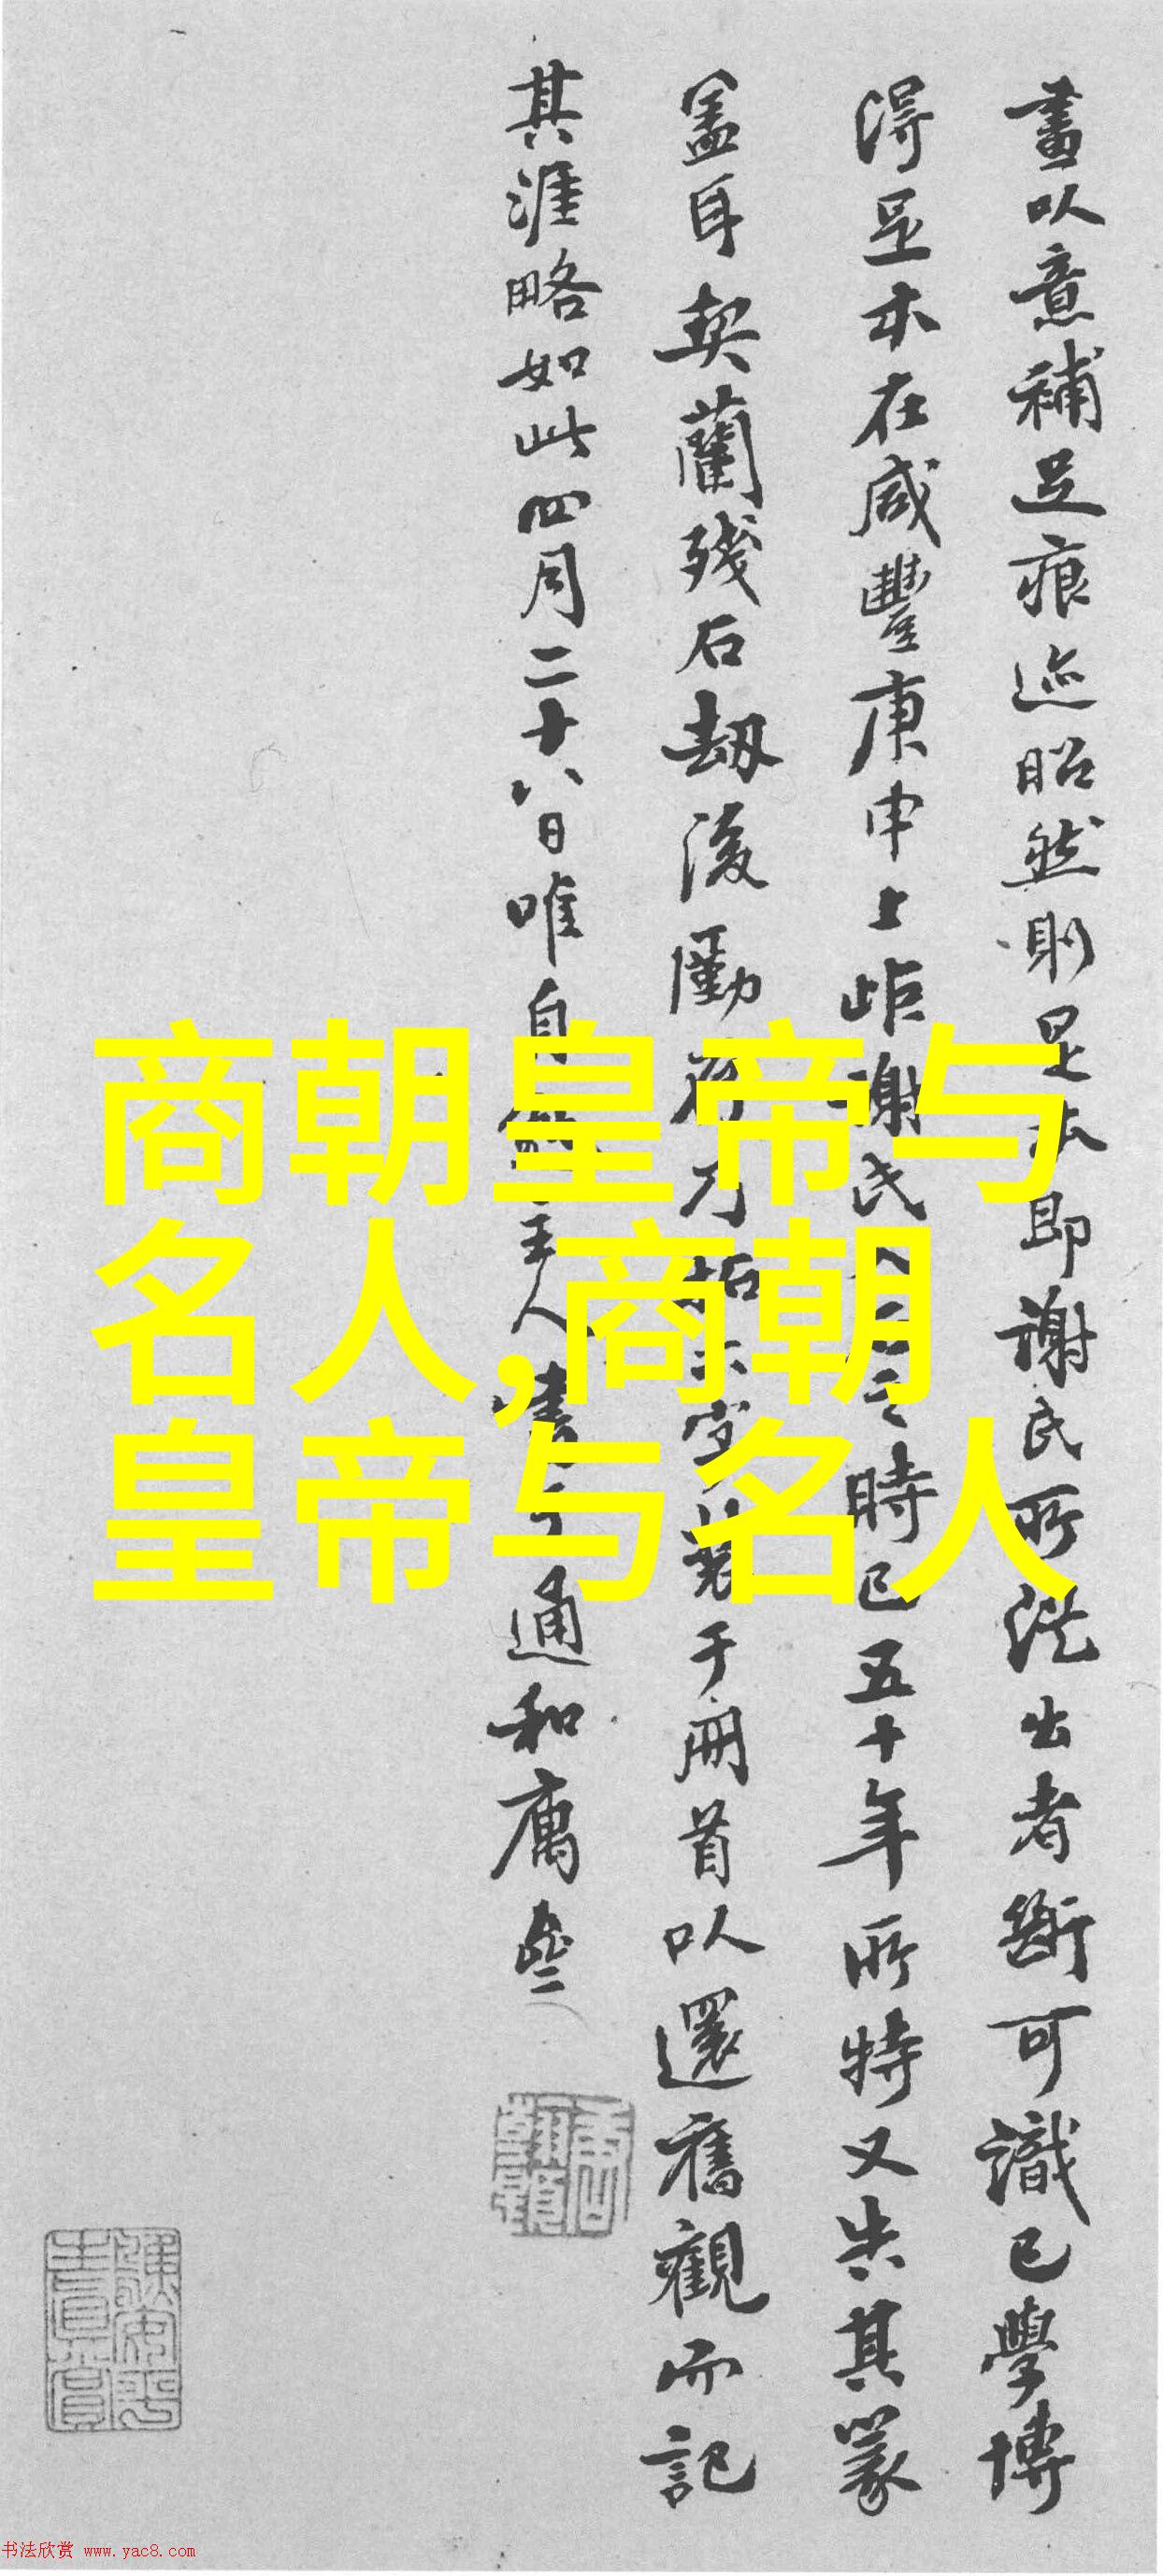 畫以意補足痕迹昭然則是本即謝氏所從出者斷可識已學博
得足本在咸豐庚申上距謝氏之時已五十年所特又失其篆
蓋耳契蘭殘石劫後乃拓裝于冊首以還舊觀而記
其涯略如此四月二十八日唯自主人通和
商朝皇帝与
名人,商朝
皇帝与名人
书法欣赏 www.yac8.com